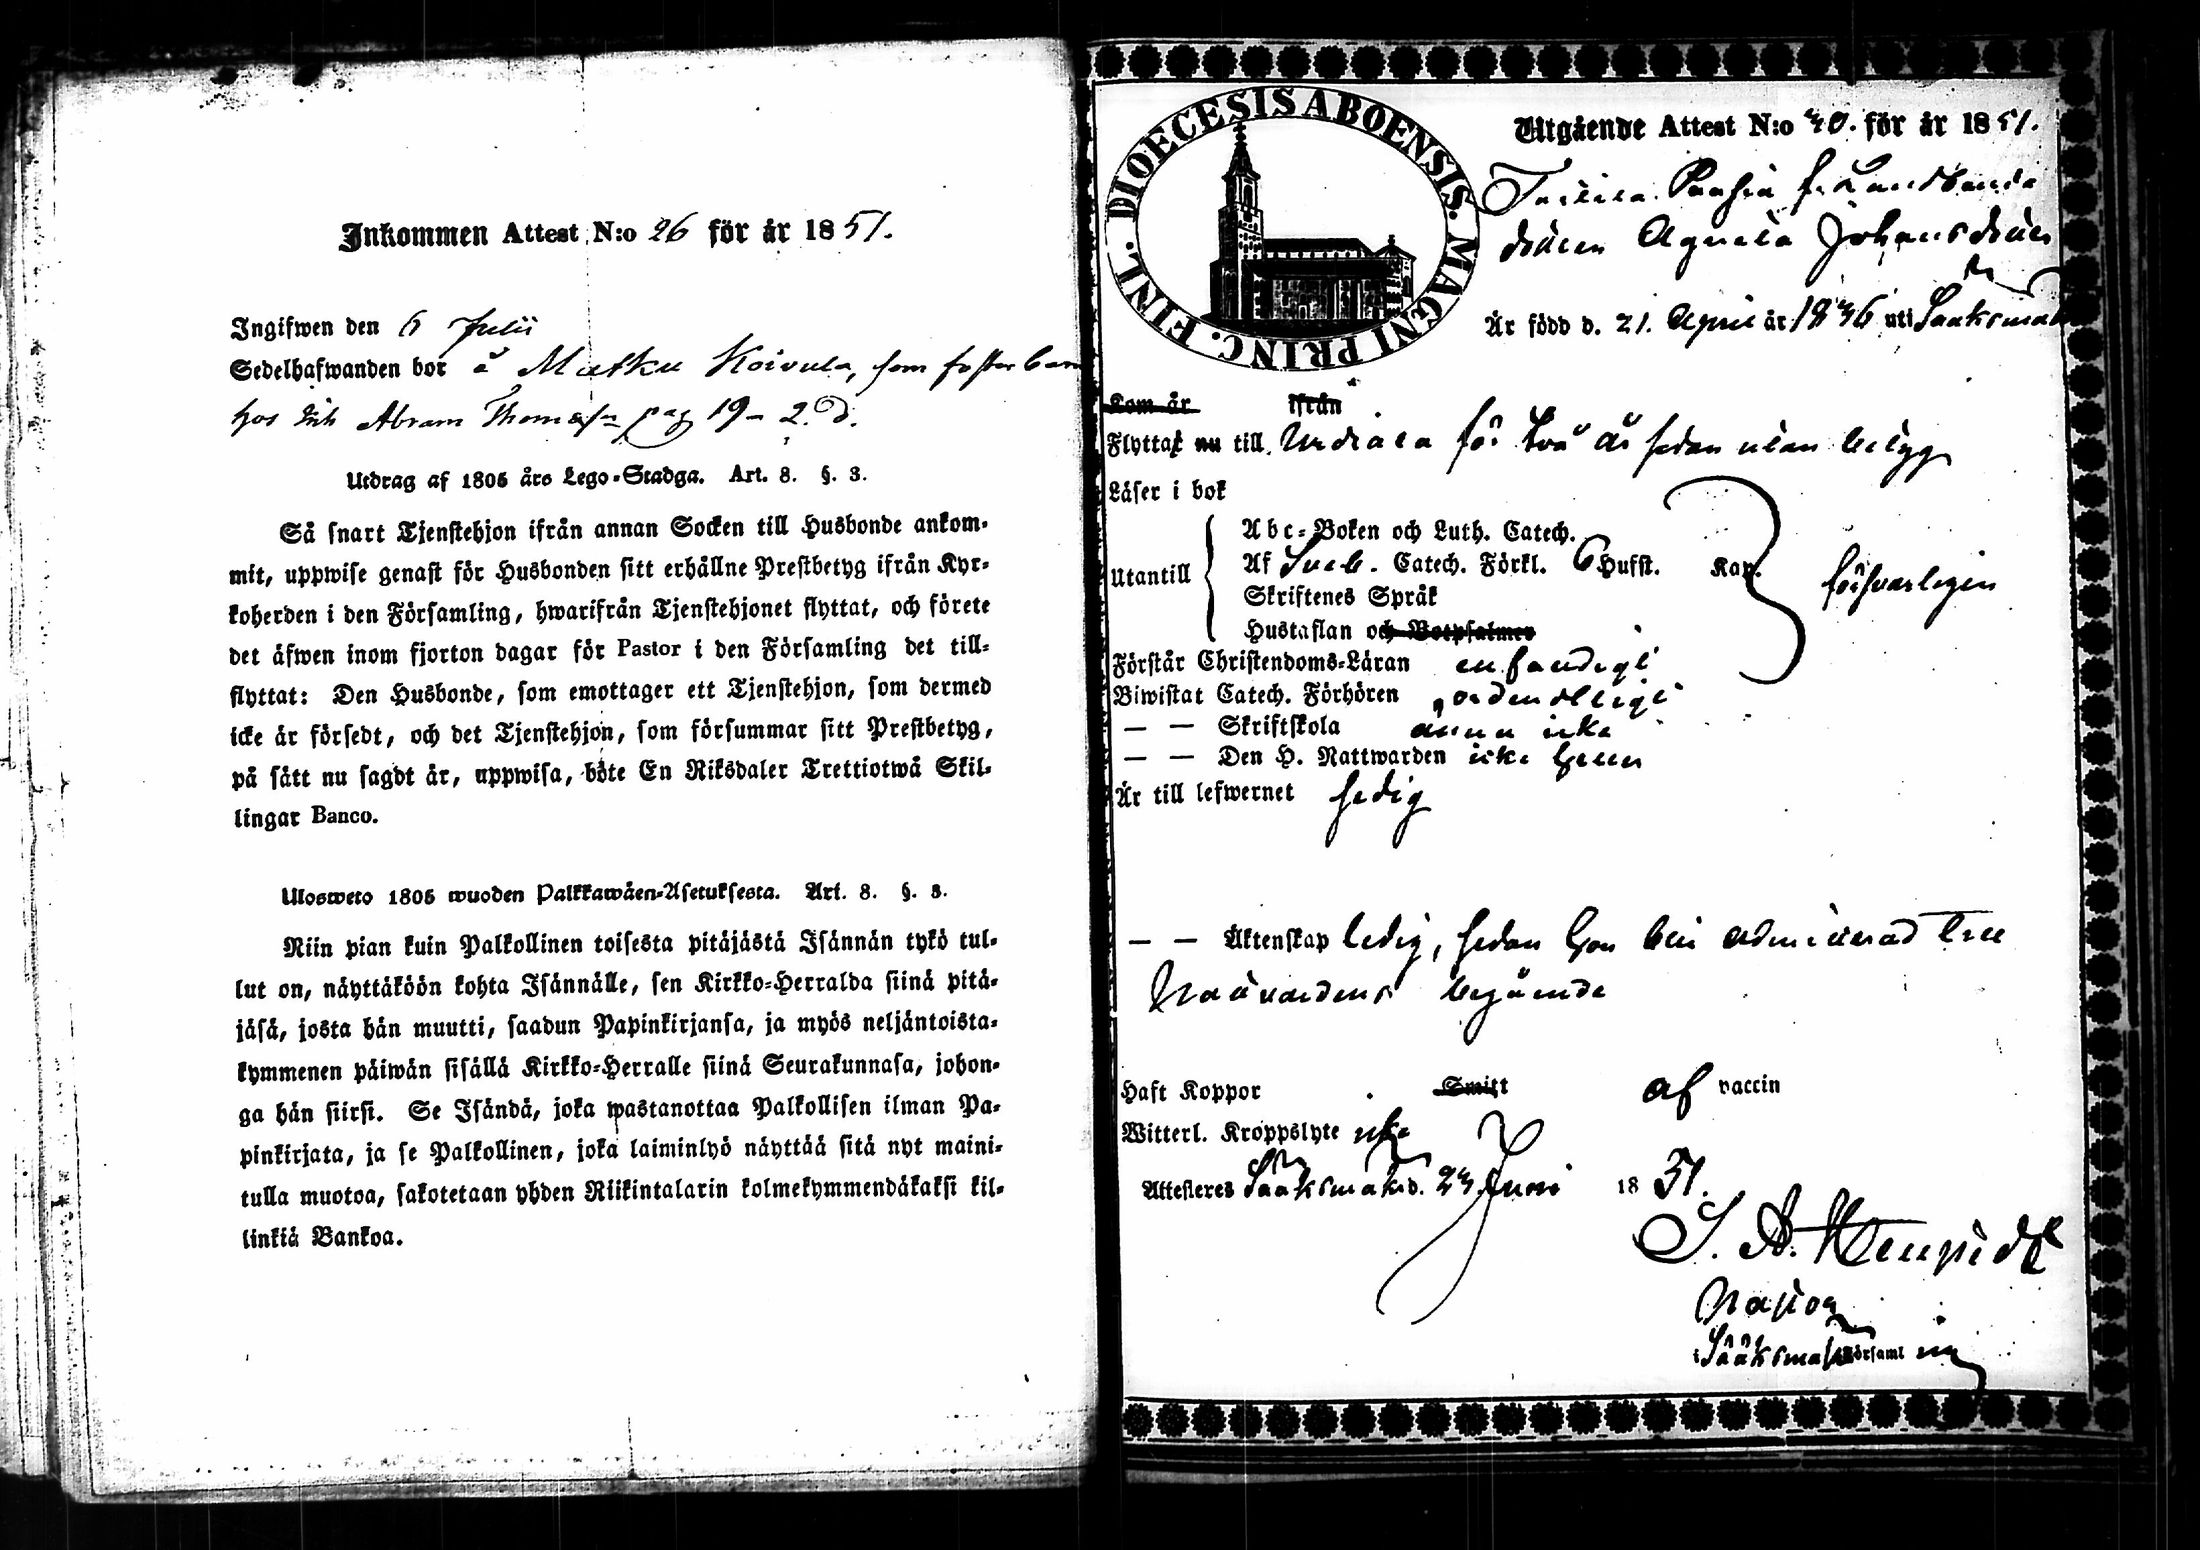 Inkommen Attest N:o 26 för år 1851.
Ingifwen den 6 Julii
Sedelhafwanden bor å Matku Koivula, som fosterbarn
hos Abram Thomasson pag 19 - 2.
Utdrag af 1805 års Lego-Stadga. Art. 8. §. 3.
Så snart Tjenstehjon ifrån annan Socken till Husbonde ankom-
mit, uppwise genast för Husbonden sitt erhållne Prestbetyg ifrån Kyr-
koherden i den Församling, hwarifrån Tjenstehjonet flyttat, och förete
det äfwen inom fjorton dagar för Pastor i den Församling det till-
flyttat: Den Husbonde, som emottager ett Tjenstehjon, som dermed
icke är försedt, och det Tjenstehjon, som försummar sitt Prestbetyg,
på sätt nu sagdt är, uppwisa, böte En Riksdaler Trettiotwå Skil-
lingar Banco.
Ulosweto 1805 wuoden Palkkawäen-Asetuksesta. Art. 8. §. 3.
Niin pian kuin Palkollinen toisesta pitäjästä Isännän tykö tul-
lut on, näyttäköön kohta Isännälle, sen Kirkko-Herralda siinä pitä-
jäsä, josta hän muutti, saadun Papinkirjansa, ja myös neljäntoista-
kymmenen päiwän sisällä Kirkko-Herralle siinä Seurakunnasa, johon-
ga hän siirsi. Se Isändä, joka wastanottaa Palkollisen ilman Pa-
pinkirjata, ja se Palkollinen, joka laiminlyö näyttää sitä nyt maini-
tulla muotoa, sakotetaan yhden Riikintalarin kolmekymmendäkaksi kil-
linkiä Bankoa.
FINL. DIOECESIS ABOENSIS. MAGNI PRINC.
Utgående Attest N:o 40. för år 1851.
f. Landbonde
dottern Agneta Johansdotter
Är född d. 21. April år 1836 uti Sääksmäki
Kom år ifrån
Flyttat nu till Urdiala för två år sedan utan betyg
Läser i bok
Utantill
Abc-Boken och Luth. Catech.
Af Sveb. Catech. Förkl. 6 Hufst. Kap.
Skriftenes Språk
Hustaflan och Botpsalmer
försvarligen
Förstår Christendoms-Läran enfaldigt
Biwistat Catech. Förhören ordentligt
— — Skriftskola ännu icke
— — Den H. Nattwarden icke heller
Är till lefwernet sedig
— — Äktenskap ledig, sedan hon blir admitterad till
Nattvardens begående
Haft Koppor Smitt af vaccin
Witterl. Kroppslyte icke
Attesteres Sääksmäki d. 23 Juni 1851.
Pastor
i Sääksmäki Församl